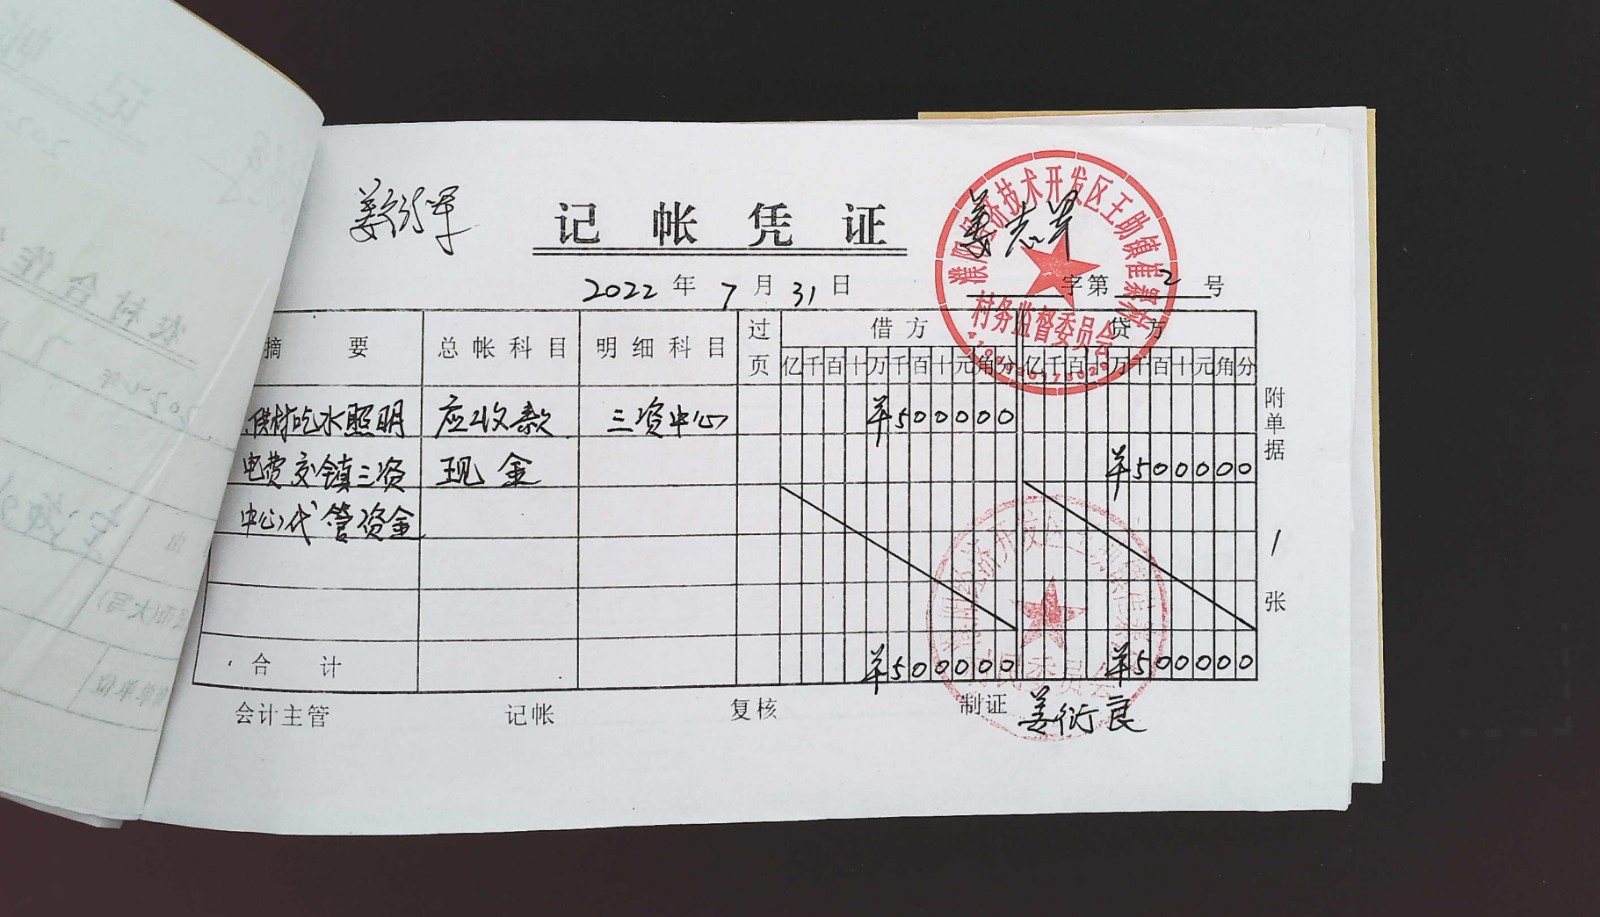 记帐凭证
姜志军
2022年7月31日
字第2号
摘要 总帐科目 明细科目 过页 借方 贷方
亿千百十万千百十元角分 亿千百十万千百十元角分
供村吃水照明 应收款 三资中心 ¥500000
电费交镇三资 现金 ¥500000
中心代管资金
合计 ¥500000 ¥500000
附单据 1 张
会计主管 记帐 复核 制证 姜衍良
濮阳经济技术开发区王助镇崔寨村
村务监督委员会